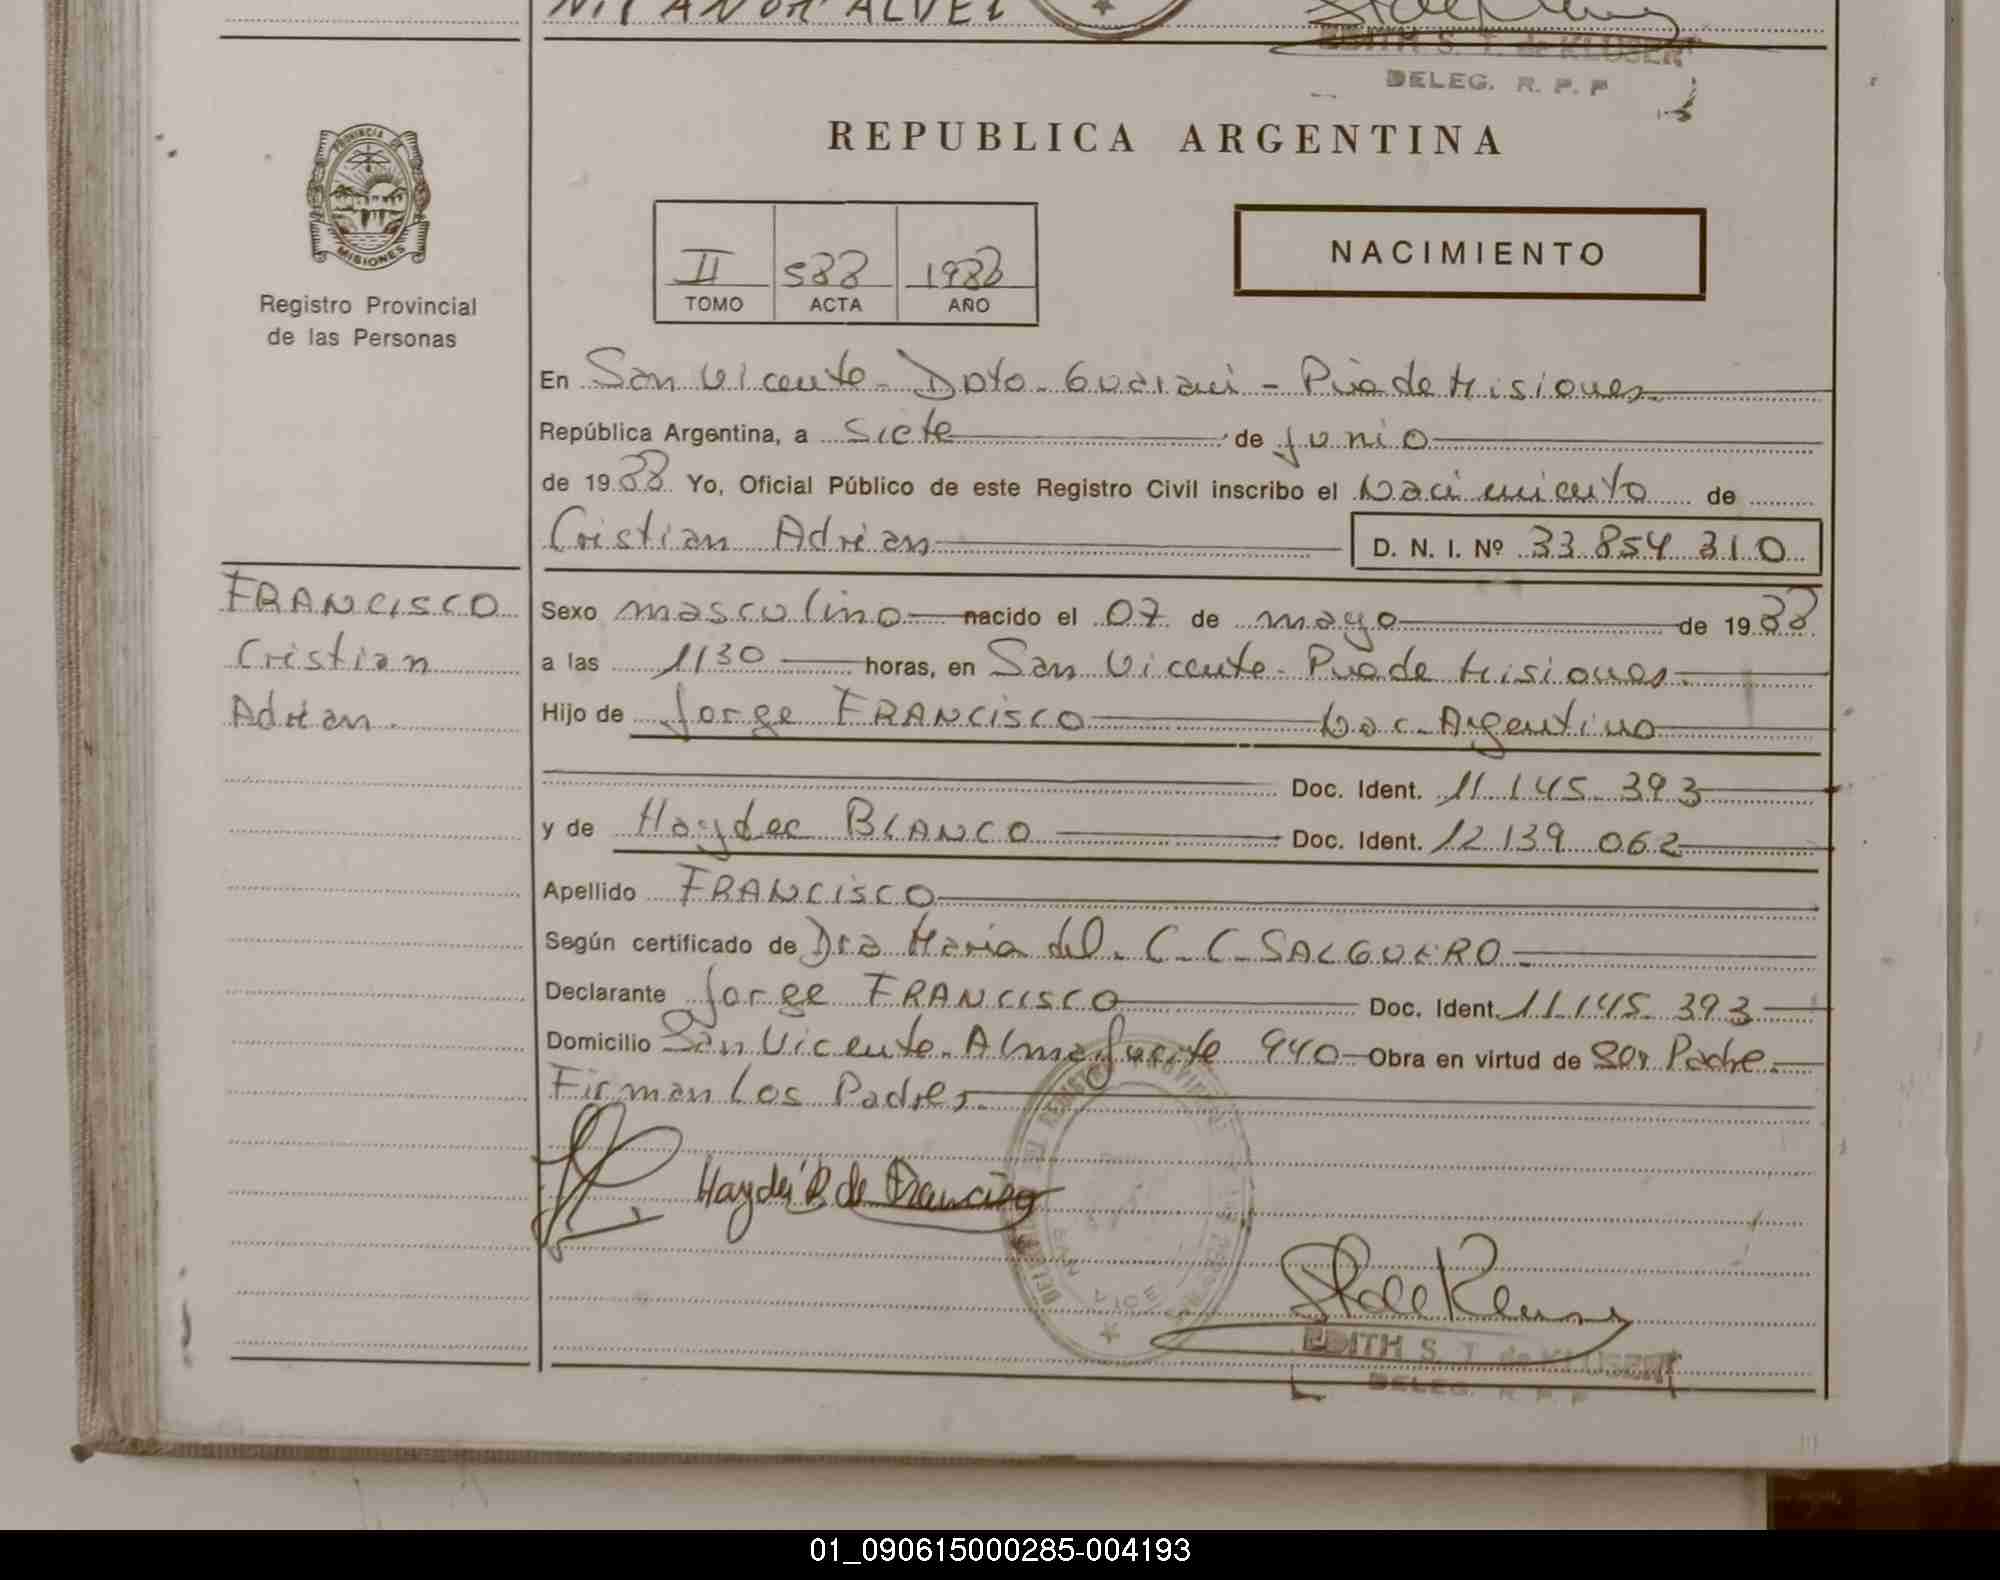 NICANOR ALVEZ
EDITH S. T. de KLUSENER
DELEG. R. P. P
PROVINCIA DE
MISIONES
Registro Provincial
de las Personas
REPUBLICA ARGENTINA
II 588 1988
TOMO ACTA AÑO
NACIMIENTO
En San Vicente - Dpto - Guarani - Pcia de Misiones
República Argentina, a Siete de junio
de 1988 Yo, Oficial Público de este Registro Civil inscribo el Nacimiento de
Cristian Adrian D. N. I. Nº 33.854 310
FRANCISCO
Cristian
Adrian.
Sexo masculino nacido el 07 de mayo de 1988
a las 1130 horas, en San Vicente - Pcia de Misiones
Hijo de Jorge FRANCISCO Nac. Argentino
Doc. Ident. 11.145.393
y de Haydee BLANCO Doc. Ident. 12.139 062
Apellido FRANCISCO
Según certificado de Dra Maria del. C. C. SALGUERO
Declarante Jorge FRANCISCO Doc. Ident. 11.145.393
Domicilio San Vicente. Almafuerte 940 Obra en virtud de Ser Padre.
Firman Los Padres.
Haydeé B de Francisco
EDITH S. T. de KLUSENER
DELEG. R. P. P
01_090615000285-004193